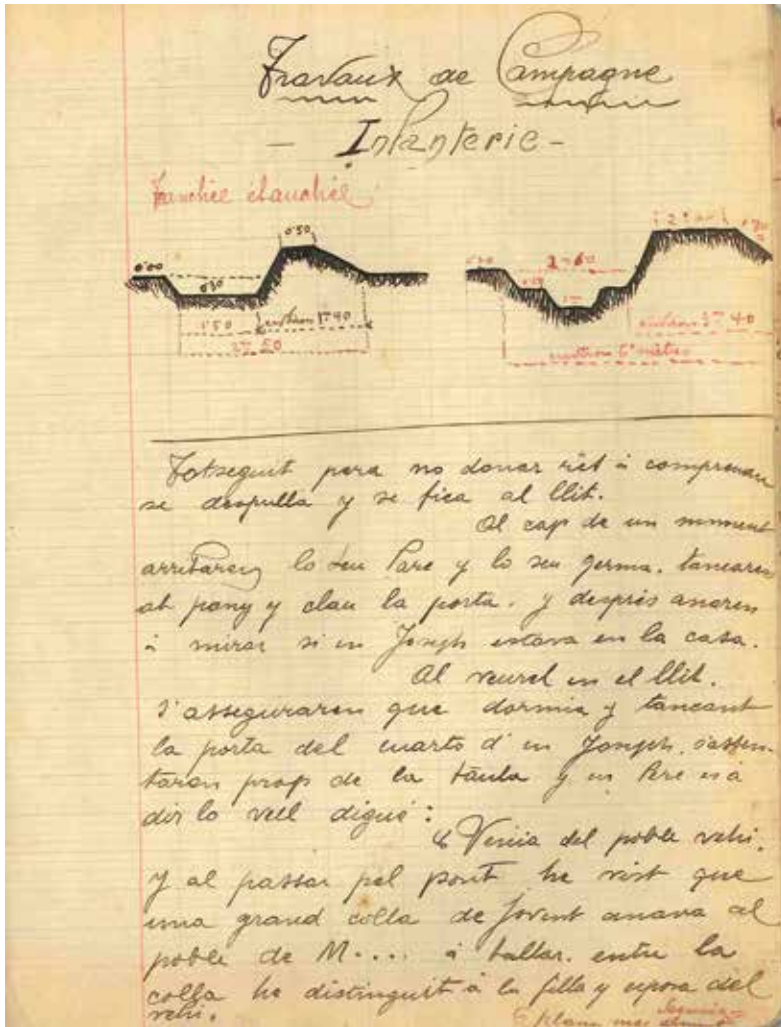 Travaux de Campagne
- Infanterie -
Tranchée ébauchée
0.50
0.30
1.50 environ 1m 40
2.60
environ 3m 40
environ 6 mètres
Totseguit pera no donar rét á comprendre
se despulla y se fica al llit.
Al cap de un moment
arribaren lo seu Pare y lo seu germa. tancaren
ab pany y clau la porta. y després anaren
á mirar si en Joseph estava en la casa.
Al veurel en el llit.
s'asseguraren que dormia y tancant
la porta del cuarto d'en Joseph. sassen-
taren prop de la taula y en Pere es á
dir lo vell digué:
"Venia del poble vehi.
Y al passar pel pont he vist que
una grand colla de jovent anava al
poble de M.... á ballar. entre la
colla he distinguit á la filla y esposa del
vehi.